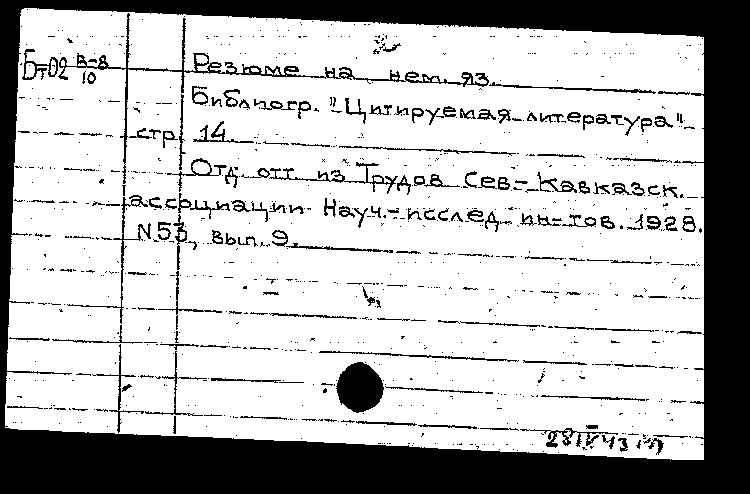 Бт02 В-8/10
Резюме на нем. яз.
Библиогр. "Цитируемая литература"
стр. 14.
Отд. отт. из Трудов Сев.-Кавказск.
ассоциации Науч.-исслед. ин-тов. 1928.
N53, вып. 9.